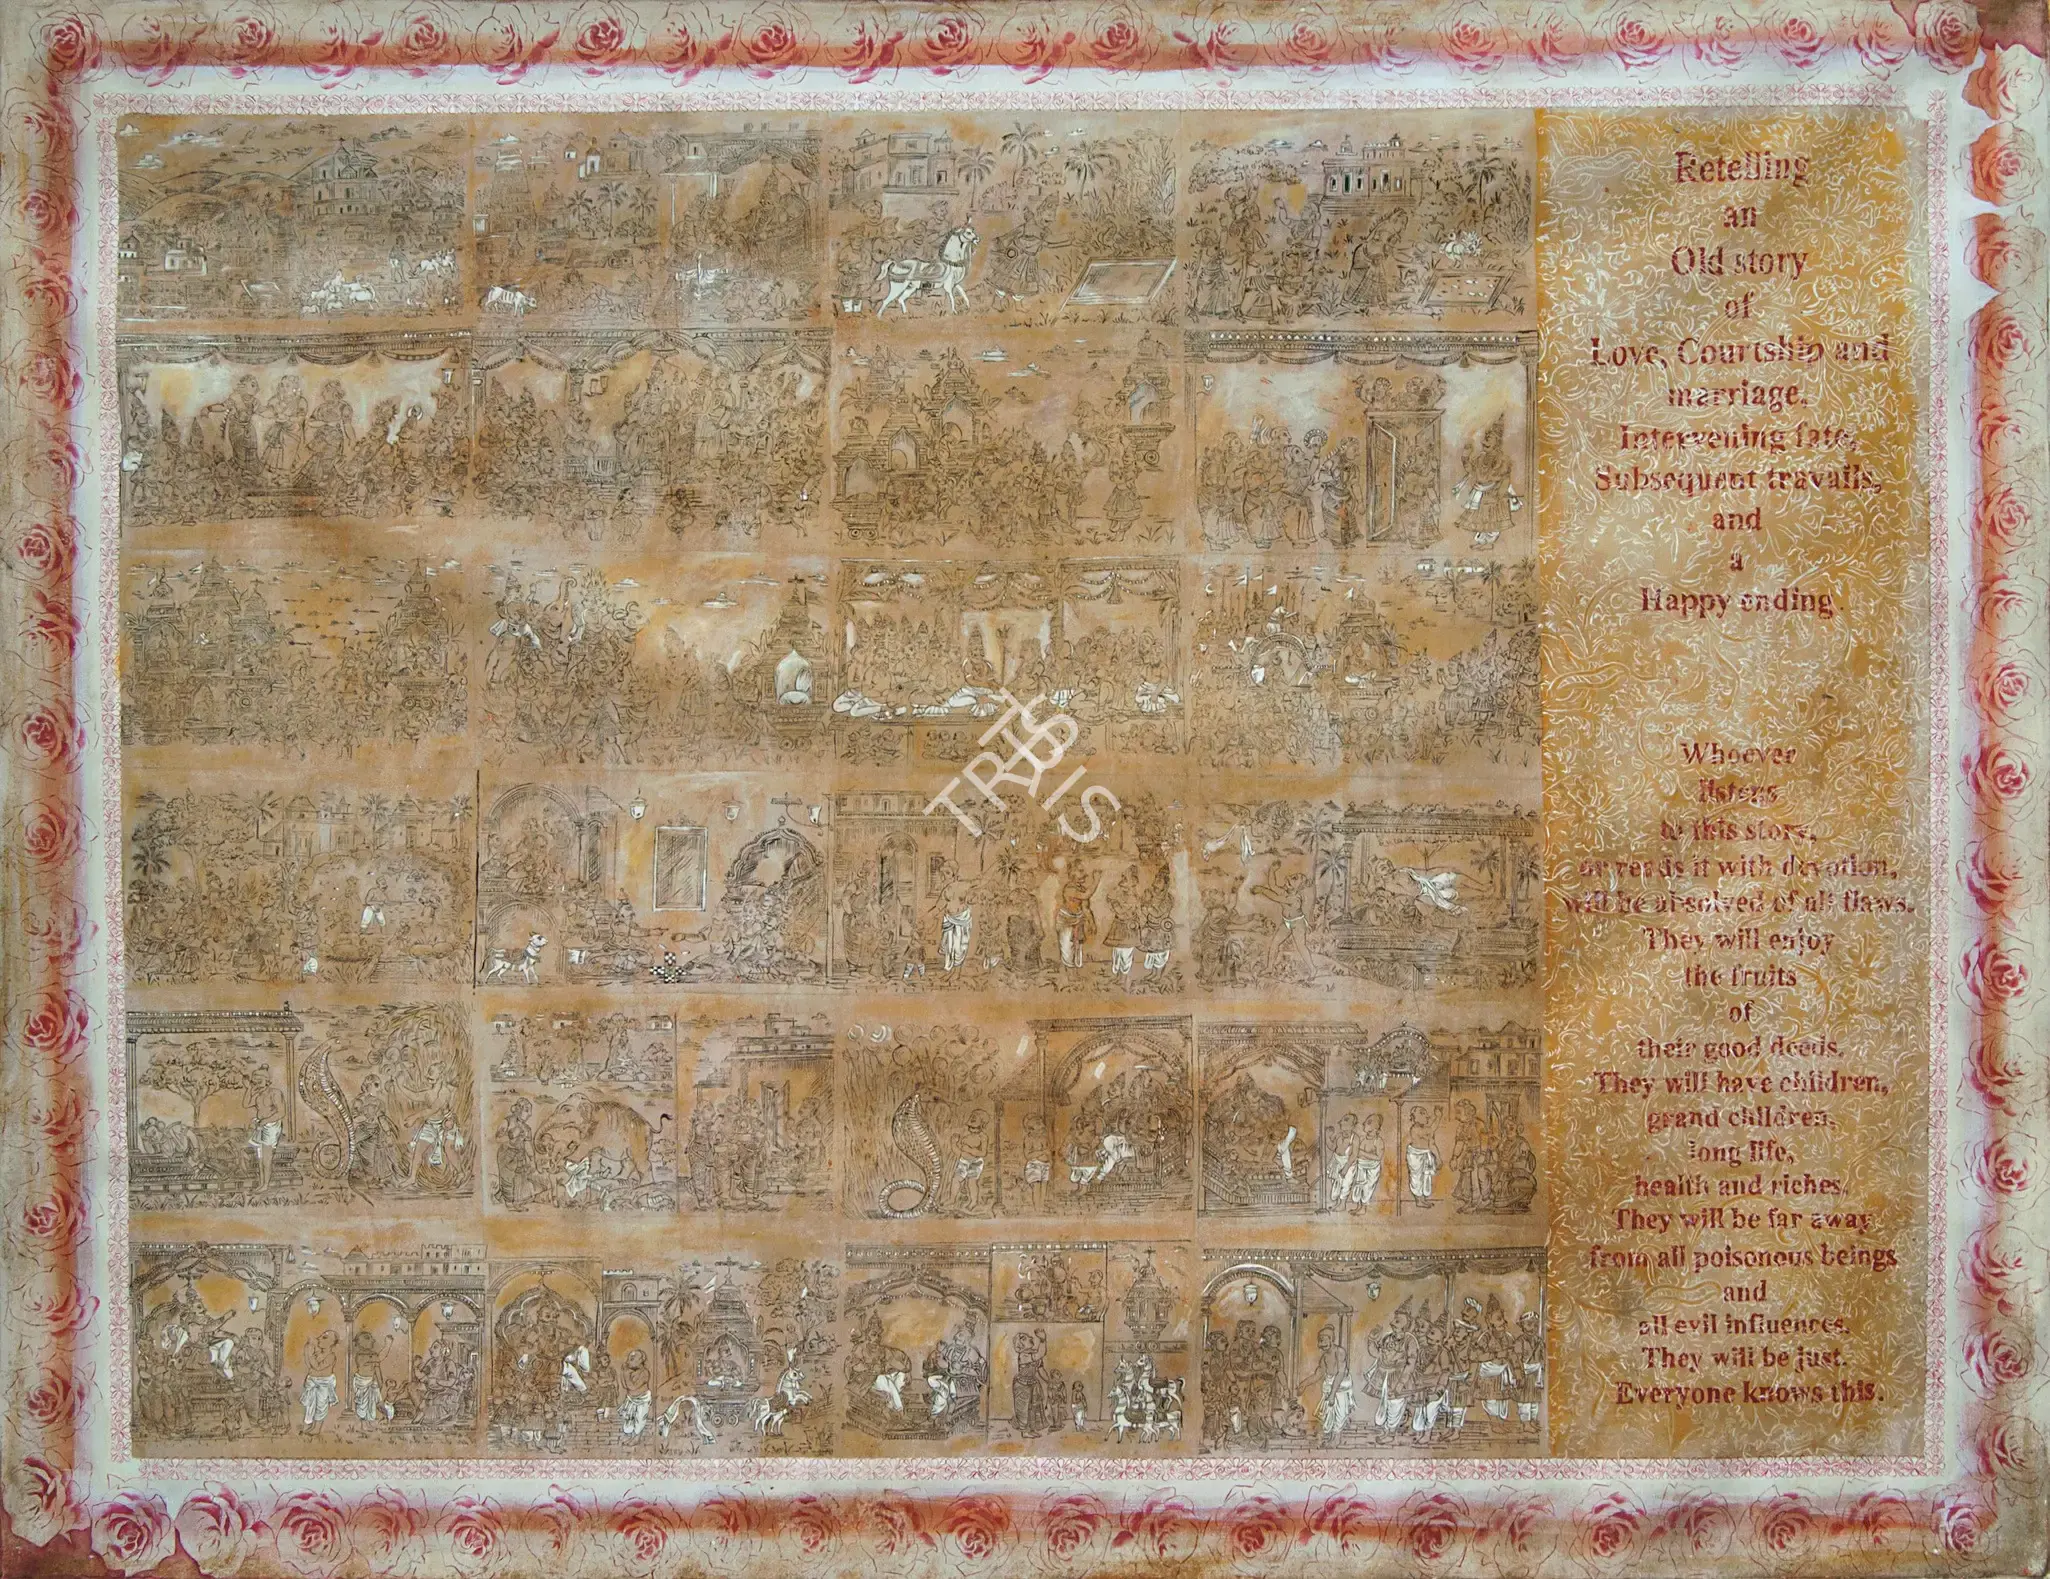 Retelling
an
Old story
of
Love, Courtship and
marriage.
Intervening fate,
Subsequent travails,
and
a
Happy ending.
Whoever
listens
to this story,
or reads it with devotion,
will be absolved of all flaws.
They will enjoy
the fruits
of
their good deeds.
They will have children,
grand children,
long life,
health and riches.
They will be far away
from all poisonous beings
and
all evil influences.
They will be just.
Everyone knows this.